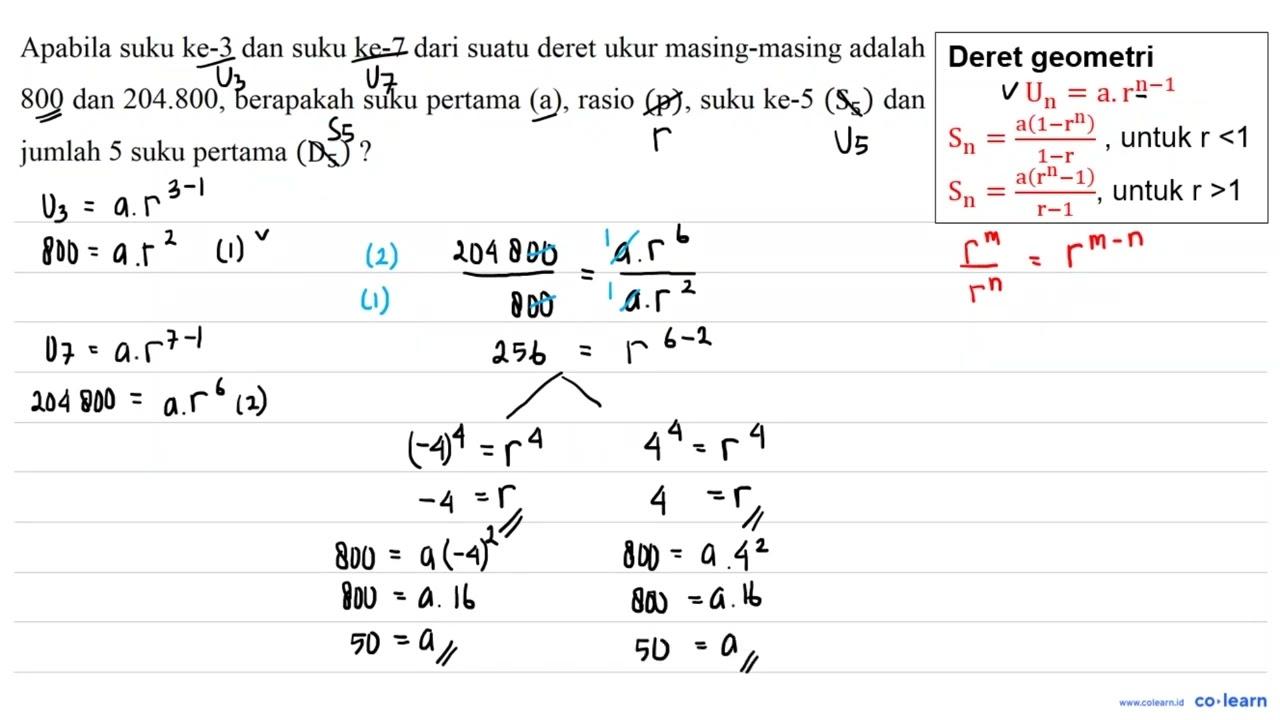 Apabila suku ke-3 dan suku ke-7 dari suatu deret ukur masing-masing adalah
U₃ U₇
800 dan 204.800, berapakah suku pertama (a), rasio (p), suku ke-5 (S₅) dan
S₅ r U₅
jumlah 5 suku pertama (D₅) ?
Deret geometri
✓ Uₙ = a.rⁿ⁻¹
Sₙ = a(1−rⁿ)/1−r , untuk r <1
Sₙ = a(rⁿ−1)/r−1, untuk r >1
rᵐ/rⁿ = rᵐ⁻ⁿ
U₃ = a.r³⁻¹
800 = a.r² (1) ✓
U₇ = a.r⁷⁻¹
204 800 = a.r⁶ (2)
(2) 204 800 = 1 a.r⁶
(1) 800 1 a.r²
256 = r⁶⁻²
(-4)⁴ = r⁴ 4⁴ = r⁴
-4 = r 4 = r
800 = a(-4)² 800 = a.4²
800 = a.16 800 = a.16
50 = a 50 = a
www.colearn.id co·learn